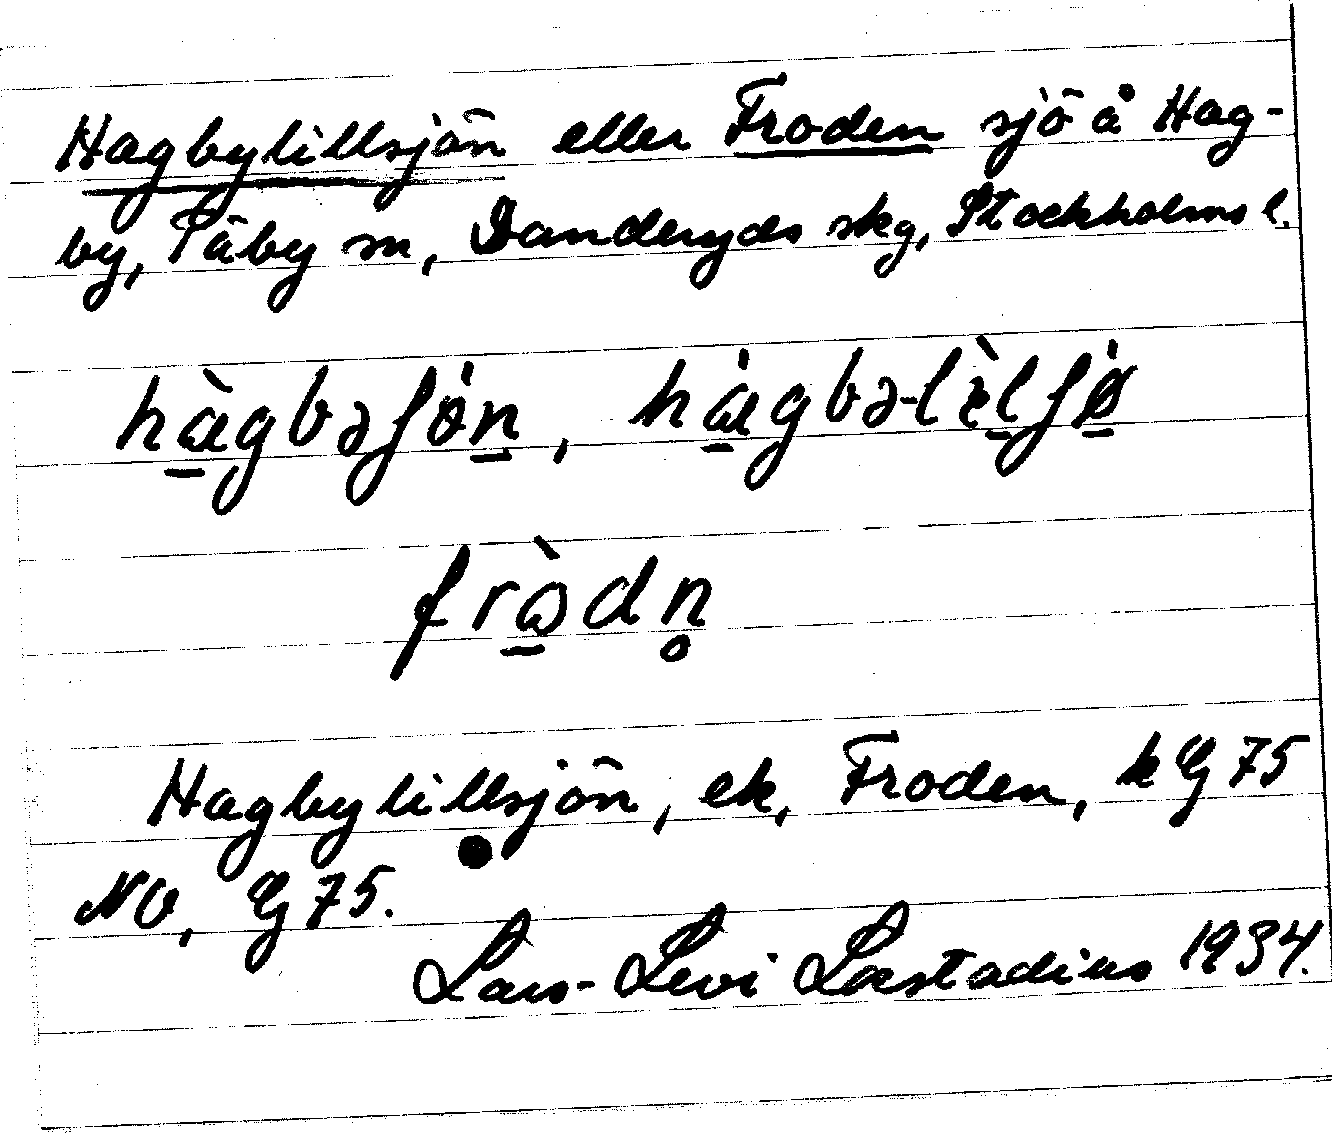 Hagbylillsjön eller Froden sjö å Hag-
by, Täby sn, Danderyds skg, Stockholms l.
hàgbəʃön, hàgbə-lìlʃö
fròdn̥
Hagbylillsjön, ek, Froden, k G 75
NO, G 75.
Lars-Levi Læstadius 1934.